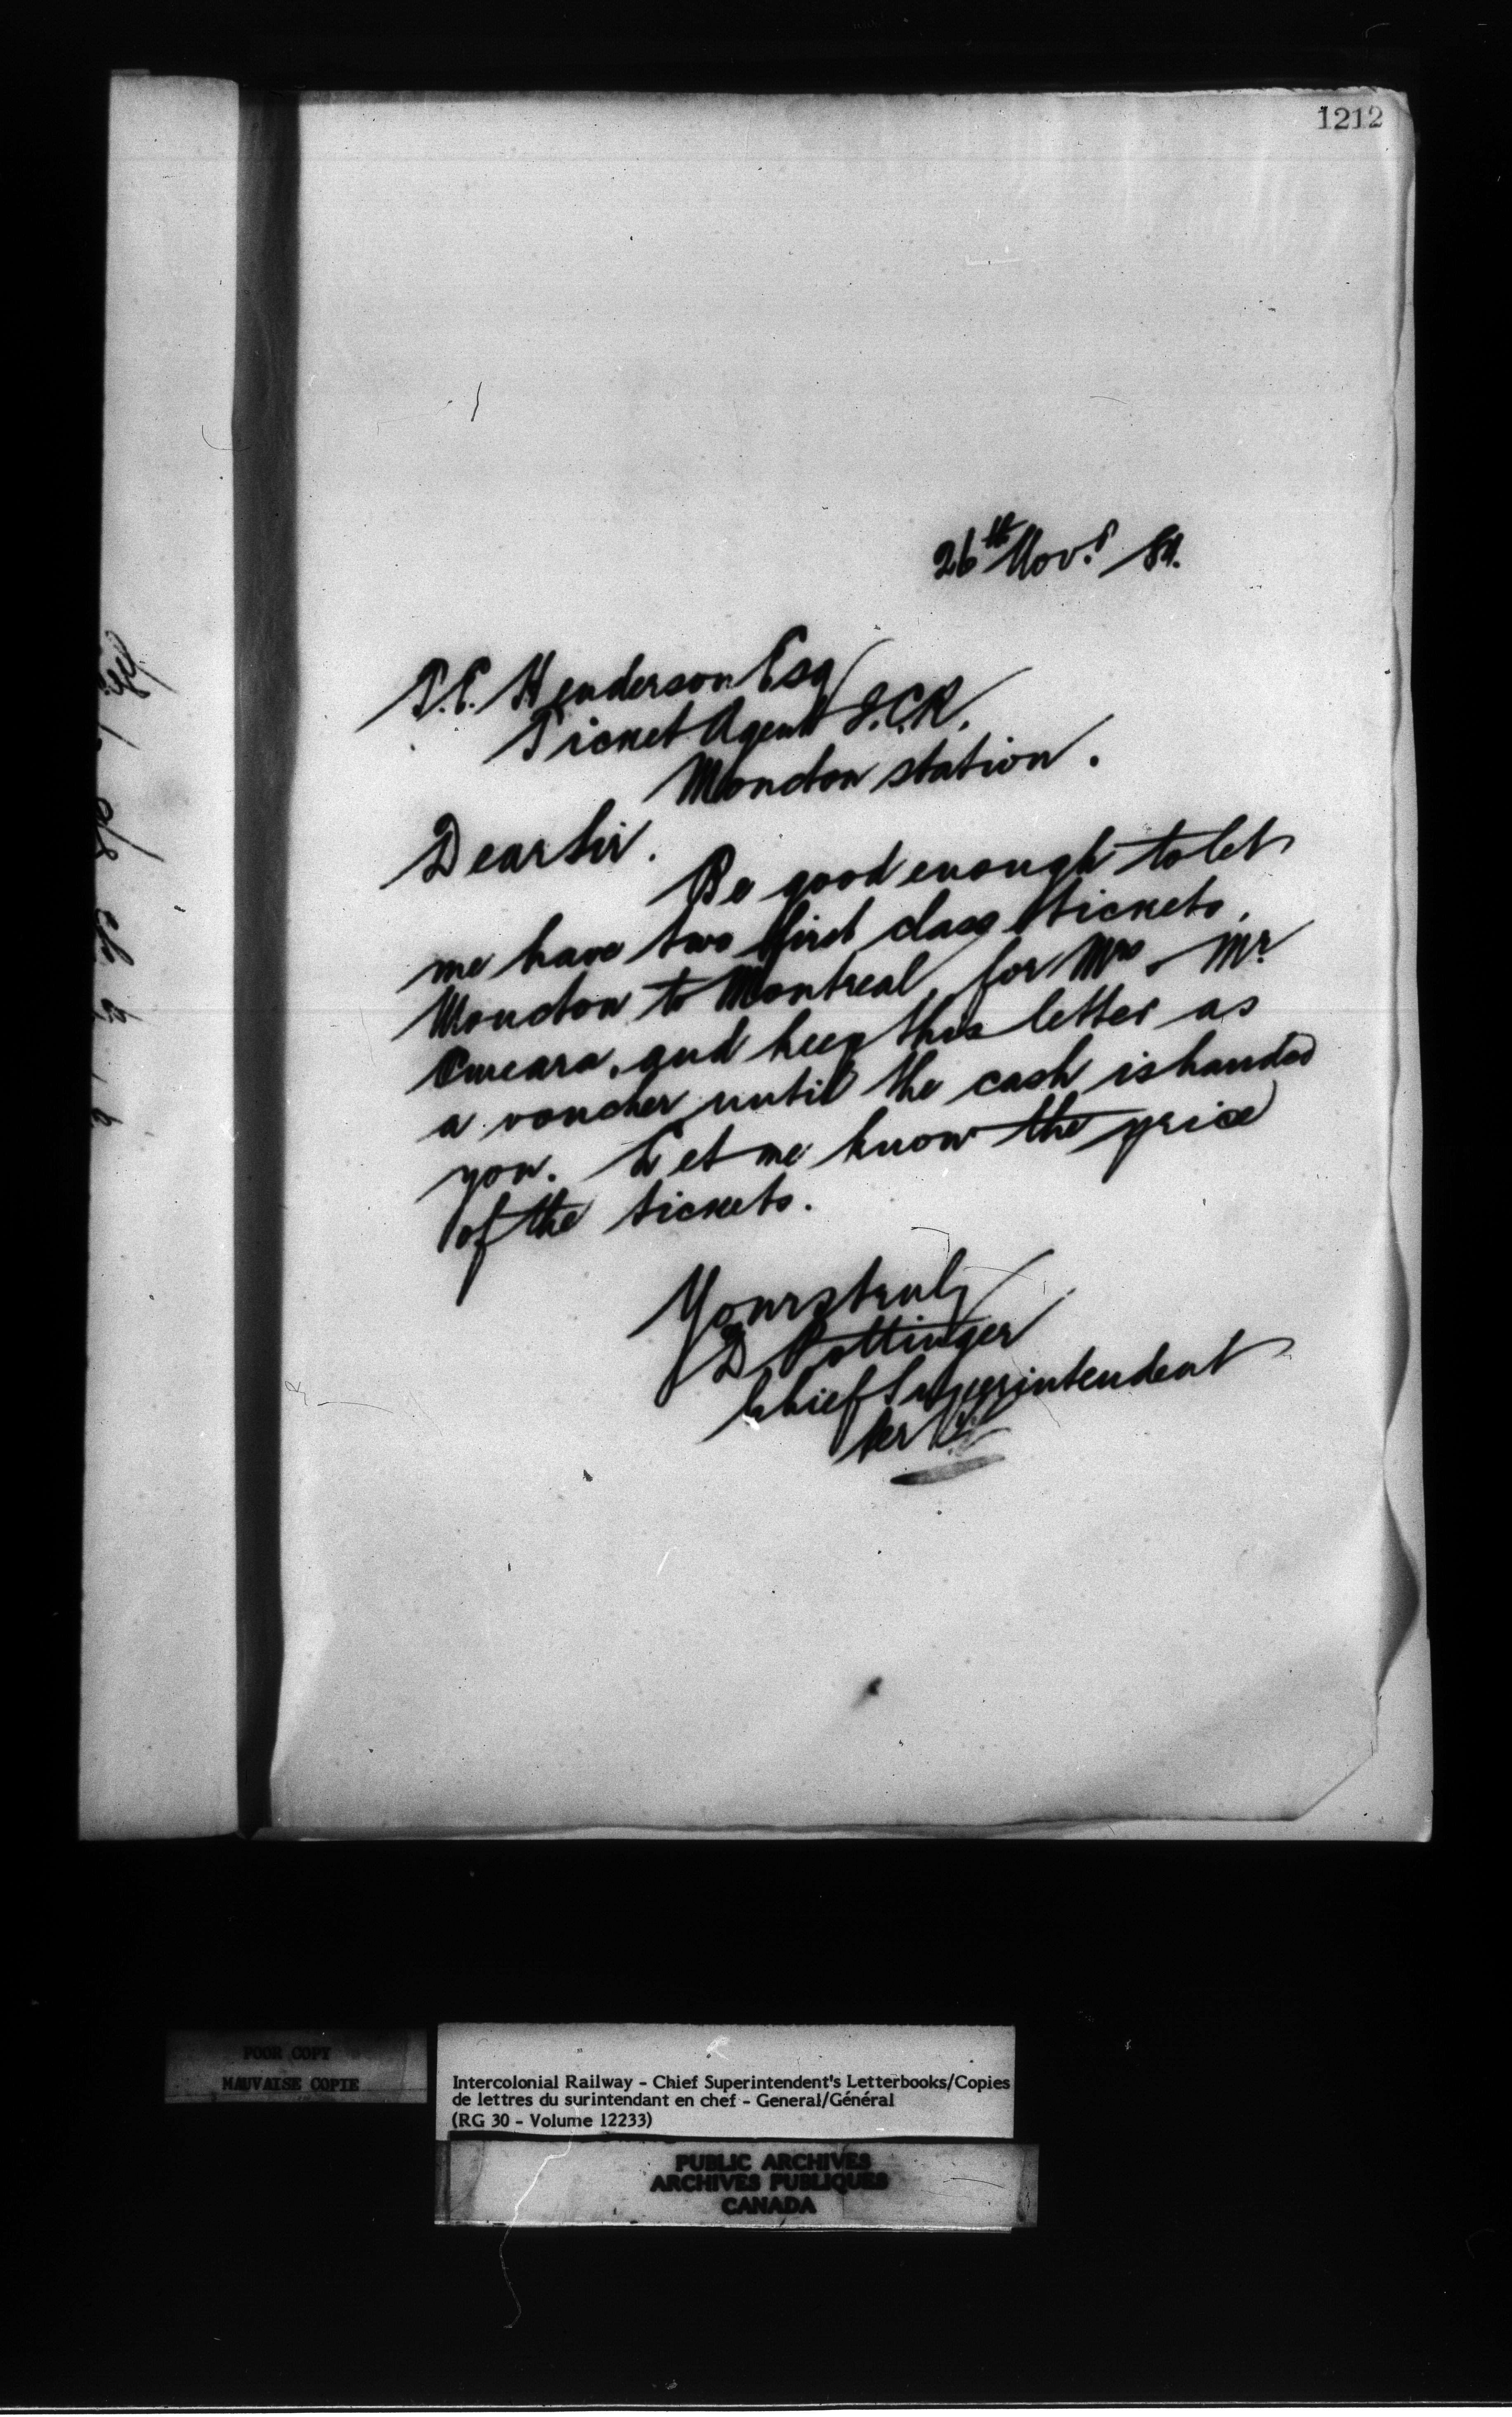 1212
26th Nov. 84.
T.E. Henderson Esq
Ticket Agent I.C.R.
Moncton station.
Dear Sir.
Be good enough to let
me have two first class tickets,
Moncton to Montreal for Mrs. Mr
and keep this letter as
a voucher until the cash is handed
you. Let me know the price
of the tickets.
Yours truly
D Pottinger
Chief Superintendent
Per
POOR COPY
MAUVAISE COPIE
Intercolonial Railway - Chief Superintendent's Letterbooks/Copies
de lettres du surintendant en chef - General/Général
(RG 30 - Volume 12233)
PUBLIC ARCHIVES
ARCHIVES PUBLIQUES
CANADA